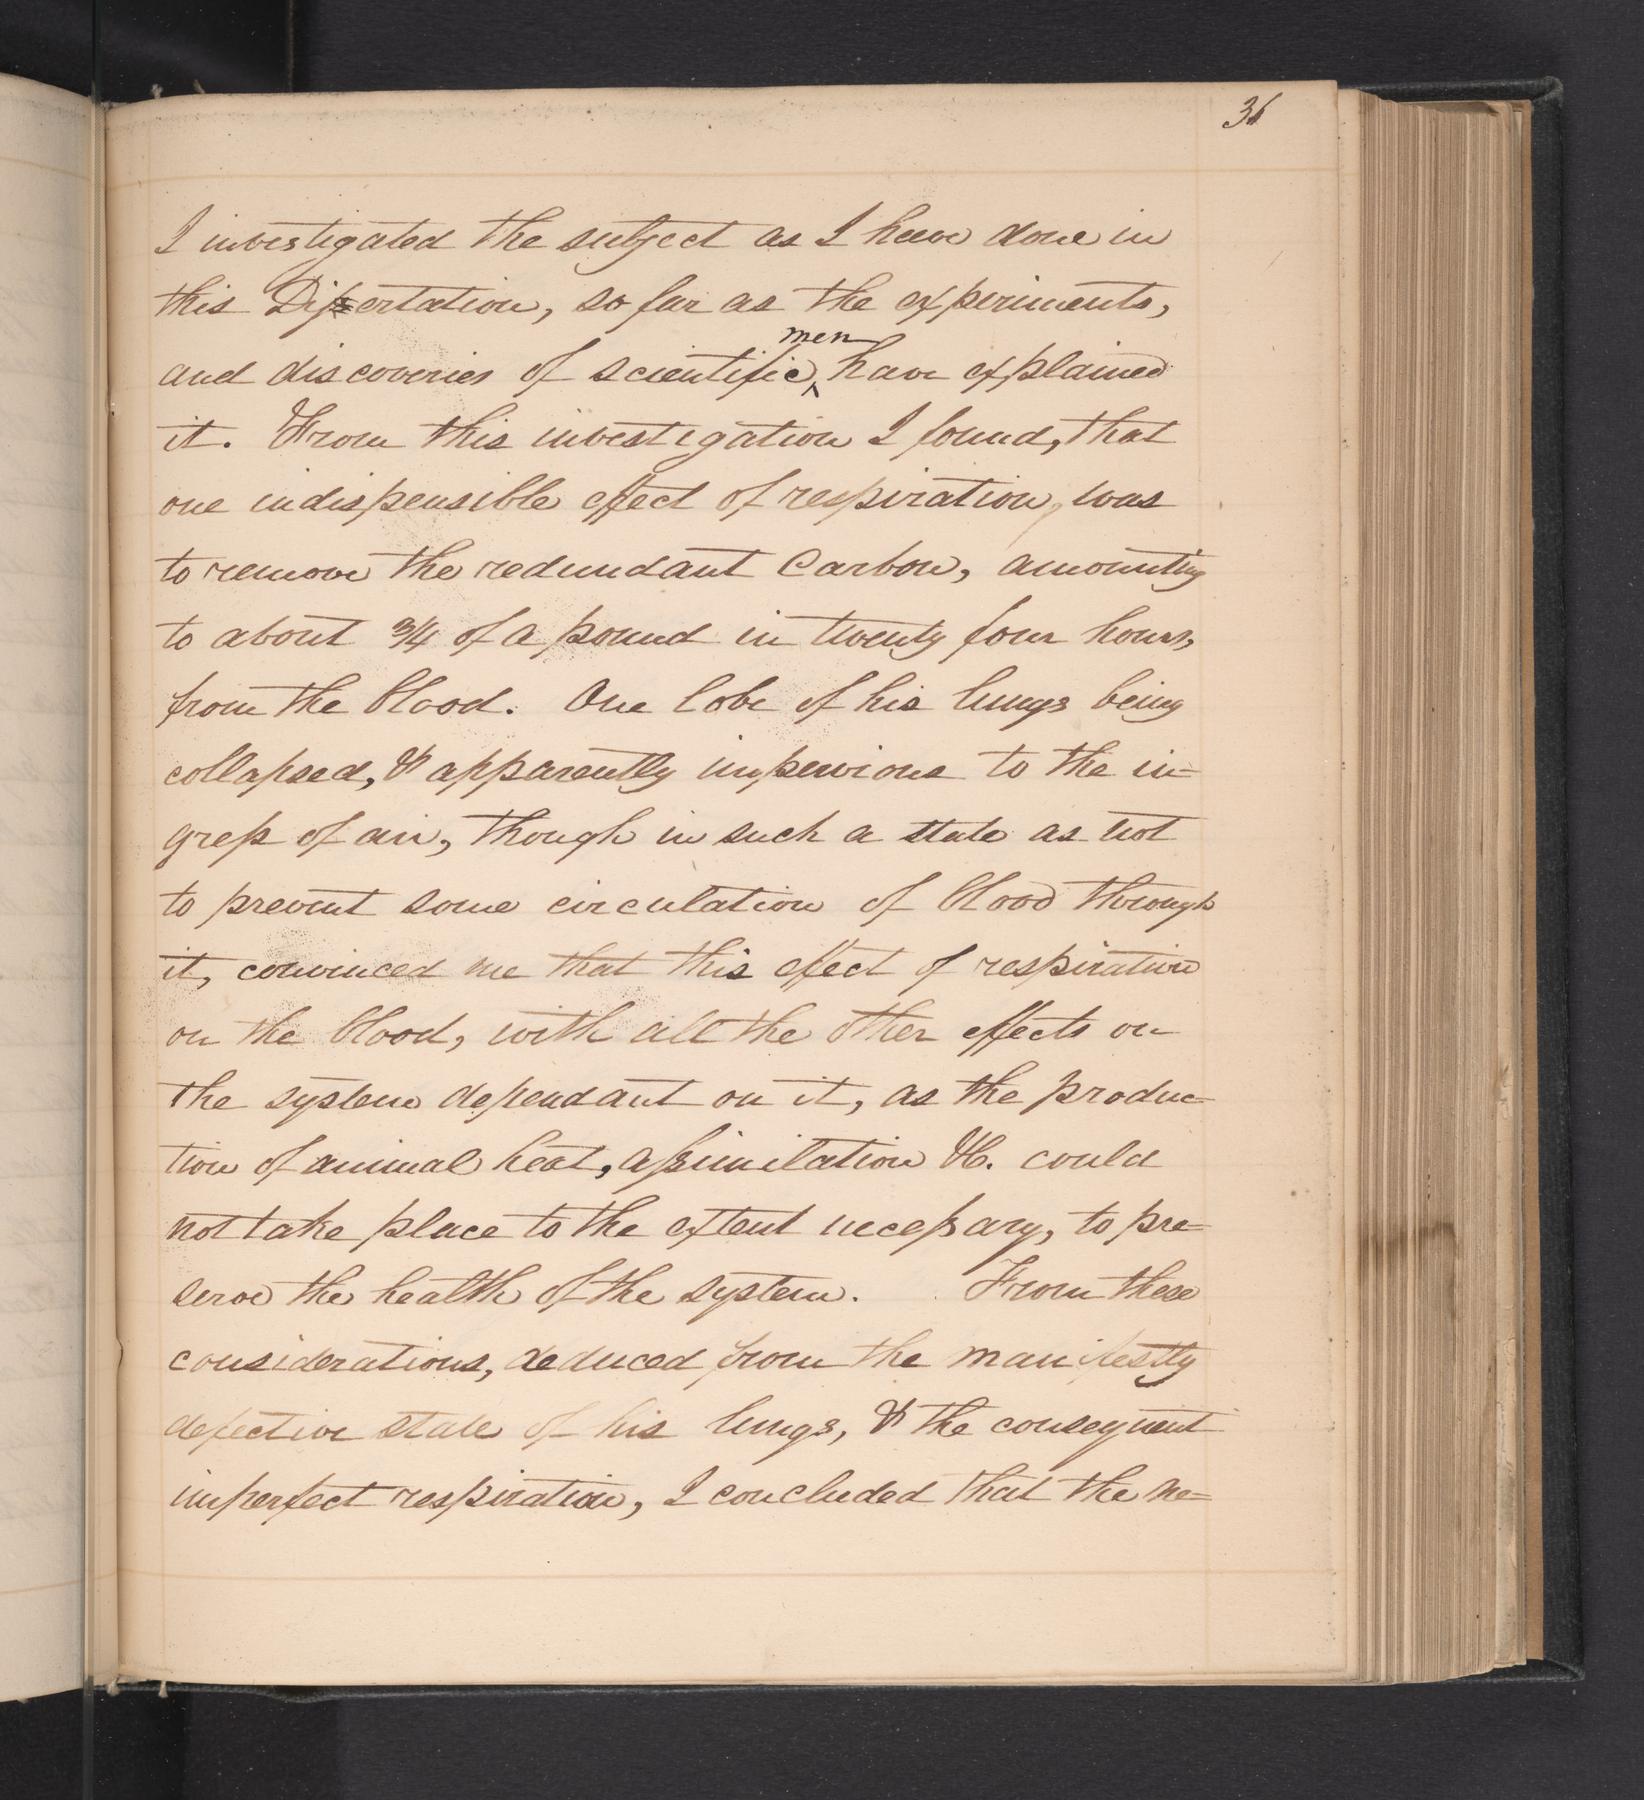 36
I investigated the subject as I have done in
this Dissertation, so far as the experiments,
and discoveries of scientific men have explained
it. From this investigation I found, that
one indispensible effect of respiration, was
to remove the redundant Carbon, amounting
to about 3/4 of a pound in twenty four hours,
from the blood. One lobe of his lungs being
collapsed, & apparently impervious to the in=
gress of air, though in such a state as not
to prevent some circulation of blood through
it, convinced me that this effect of respiration
on the blood, with all the other effects on
the system dependant on it, as the produc=
tion of animal heat, assimilation &c. could
not take place to the extent necessary, to pre=
serve the health of the system. From these
considerations, deduced from the manifestly
defective state of his lungs, & the consequent
imperfect respiration, I concluded that the ne=